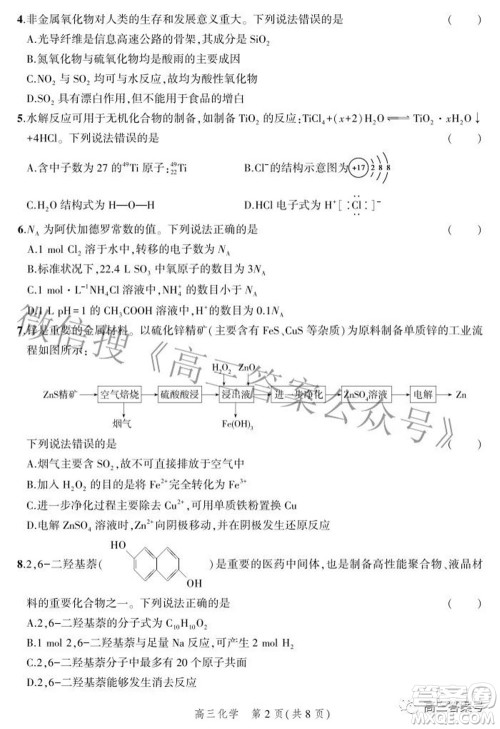 4.非金属氧化物对人类的生存和发展意义重大。下列说法错误的是 (  )
A.光导纤维是信息高速公路的骨架,其成分是 SiO₂
B.氮氧化物与硫氧化物均是酸雨的主要成因
C.NO₂ 与 SO₂ 均可与水反应,故均为酸性氧化物
D.SO₂ 具有漂白作用,但不能用于食品的增白
5.水解反应可用于无机化合物的制备,如制备 TiO₂ 的反应:TiCl₄+(x+2)H₂O⇌TiO₂·xH₂O↓
+4HCl。下列说法错误的是 (  )
A.含中子数为 27 的 ⁴⁹Ti 原子:⁴⁹₂₂Ti B.Cl⁻的结构示意图为 +17 2 8 8
C.H₂O 结构式为 H—O—H D.HCl 电子式为 H⁺[:Cl:]⁻
6.Nₐ 为阿伏加德罗常数的值。下列说法正确的是 (  )
A.1 mol Cl₂ 溶于水中,转移的电子数为 Nₐ
B.标准状况下,22.4 L SO₃ 中氧原子的数目为 3Nₐ
C.1 mol·L⁻¹NH₄Cl 溶液中,NH₄⁺的数目小于 Nₐ
D.1 L pH=1 的 CH₃COOH 溶液中,H⁺的数目为 0.1Nₐ
7.锌是重要的金属材料。以硫化锌精矿(主要含有 FeS、CuS 等杂质)为原料制备单质锌的工业流
程如图所示: (  )
H₂O₂ ZnO
ZnS精矿 空气焙烧 硫酸酸浸 浸出液 进一步净化 ZnSO₄溶液 电解 Zn
烟气 Fe(OH)₃
下列说法错误的是
A.烟气主要含 SO₂,故不能直接排放至空气中
B.加入 H₂O₂ 的目的是将 Fe²⁺完全转化为 Fe³⁺
C.进一步净化过程主要除去 Cu²⁺,可用单质铁粉置换出 Cu
D.电解 ZnSO₄ 溶液时,Zn²⁺向阴极移动,并在阴极发生还原反应
HO
8.2,6-二羟基萘( )是重要的医药中间体,也是制备高性能聚合物、液晶材
OH
料的重要化合物之一。下列说法错误的是 (  )
A.2,6-二羟基萘的分子式为 C₁₀H₁₀O₂
B.1 mol 2,6-二羟基萘与足量 Na 反应,可产生 2 mol H₂
C.2,6-二羟基萘分子中最多有 20 个原子共面
D.2,6-二羟基萘苯环上的一氯代物有 3 种
高三化学 第 2 页(共 8 页)
微信搜《高三答案公众号》
高三答案号